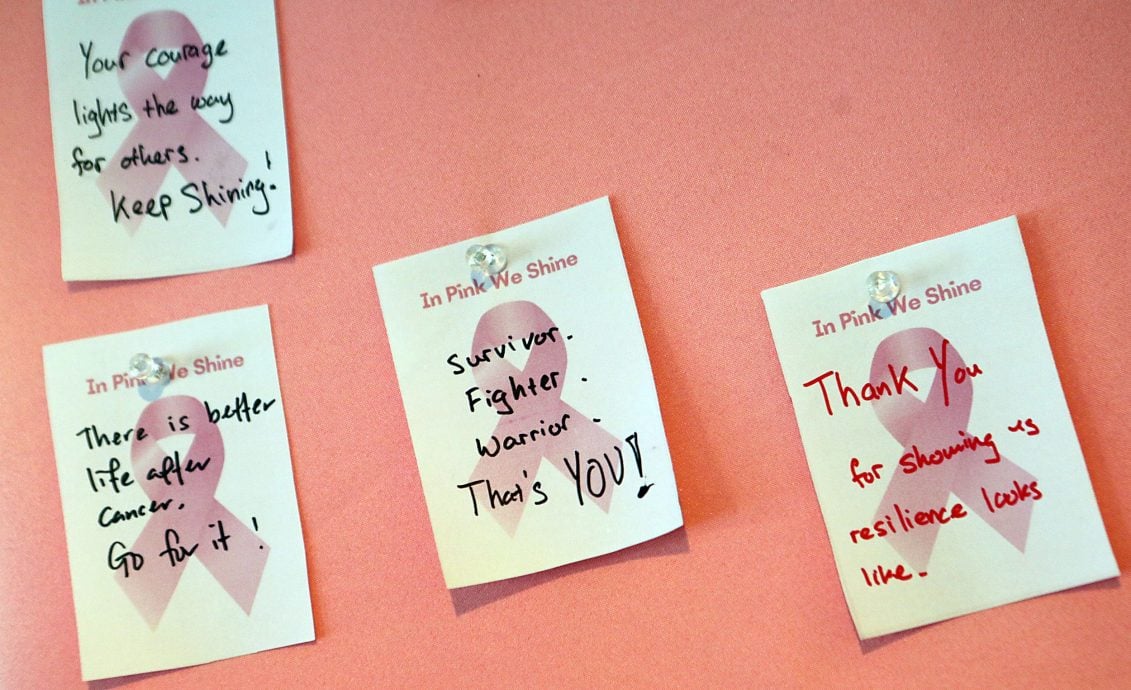 In Pink We Shine
Your courage
lights the way
for others.
Keep Shining!
In Pink We Shine
There is better
life after
cancer.
Go for it!
In Pink We Shine
Survivor.
Fighter.
Warrior.
That's YOU!
In Pink We Shine
Thank You
for showing us
resilience looks
like.